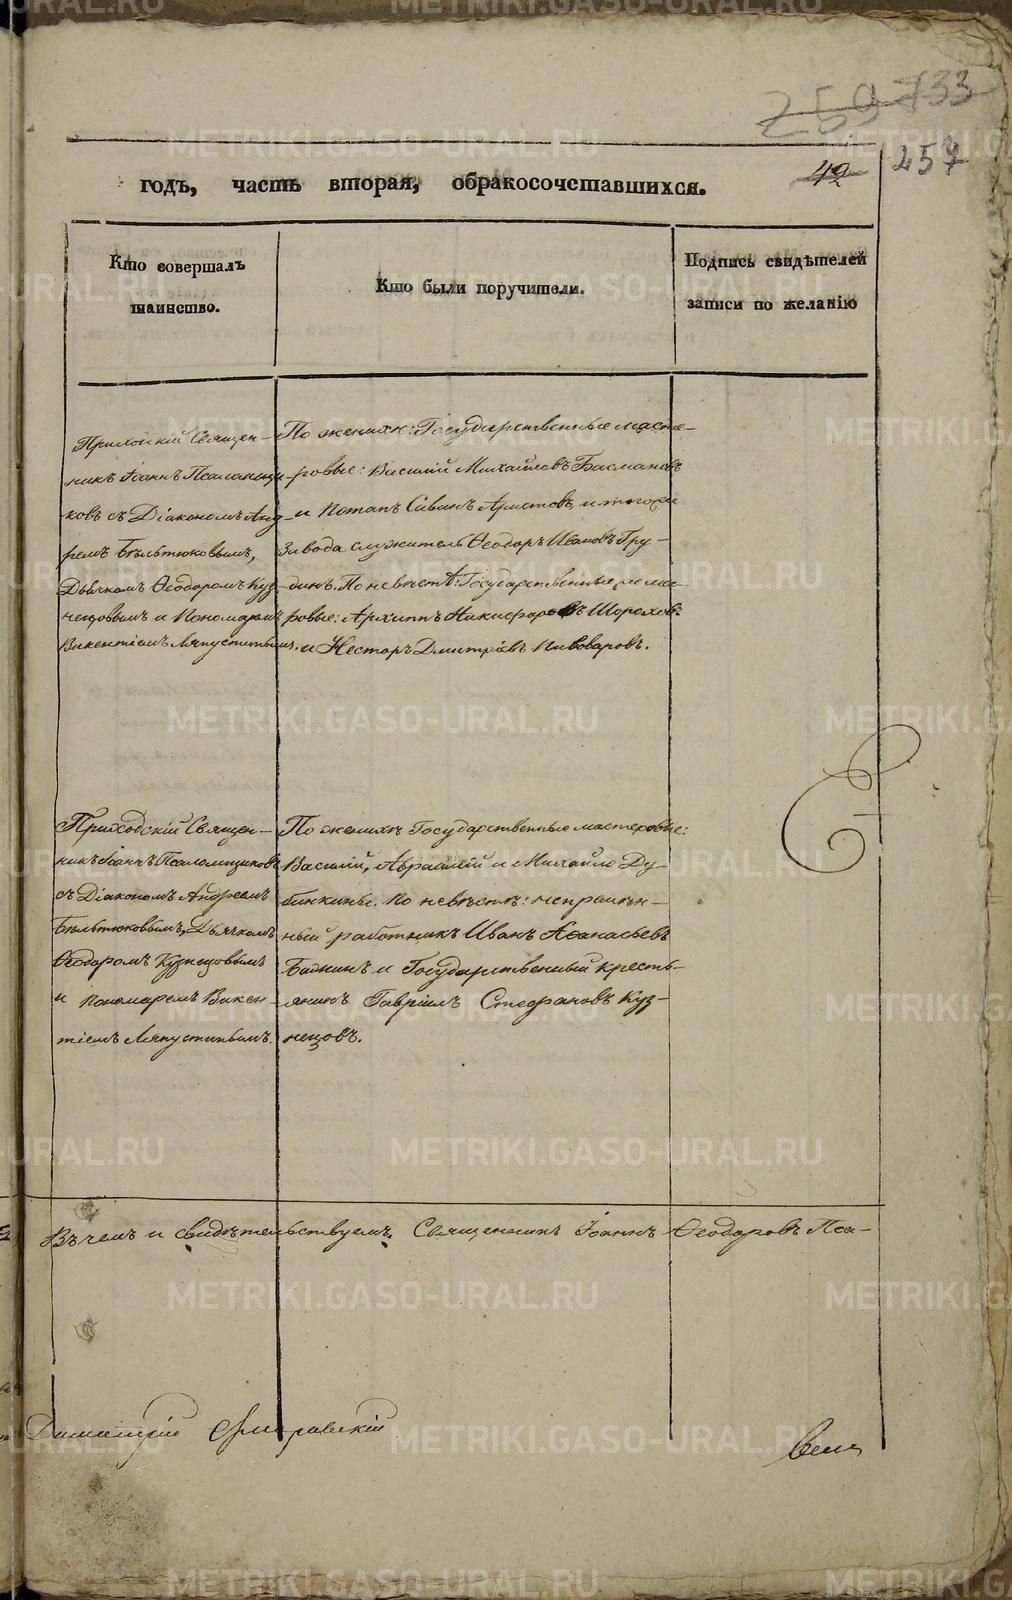 259 733
257
годъ, часть вторая, обракосочетавшихся.
42
Кто совершалъ
таинство.
Кто были поручители.
Подпись свидѣтелей
записи по желанію
Приходскій Священ-
никъ Іоаннъ Псаломщи-
ковъ съ Діакономъ Анд-
реемъ Бѣльтюковымъ,
Дьячкомъ Ѳеодоромъ Куз-
нецовымъ и Пономаремъ
Викентіемъ Ляпустинымъ.
По женихѣ: Государственные масте-
ровые: Василій Михайловъ Басмановъ
и Потапъ Савинъ Аристовъ, и тогоже
завода служитель Ѳеодоръ Ивановъ Гру-
динъ. По невѣстѣ: Государственные масте-
ровые: Архиппъ Никифоровъ Шороховъ
и Несторъ Дмитріевъ Пивоваровъ.
Приходскій Священ-
никъ Іоаннъ Псаломщиковъ
съ Діакономъ Андреемъ
Бѣльтюковымъ, Дьячкомъ
Ѳеодоромъ Кузнецовымъ
и Пономаремъ Викен-
тіемъ Ляпустинымъ.
По женихѣ Государственные мастеровые:
Василій, Авраамій и Михайло Ду-
бинкины. По невѣстѣ: непремѣн-
ный работникъ Иванъ Аѳанасьевъ
и Государственный кресть-
янинъ Гавріилъ Стефановъ Куз-
нецовъ.
Въ чемъ и свидѣтельствуемъ. Священникъ Іоаннъ Ѳеодоровъ Пса-
Димитрій
METRIKI.GASO-URAL.RU